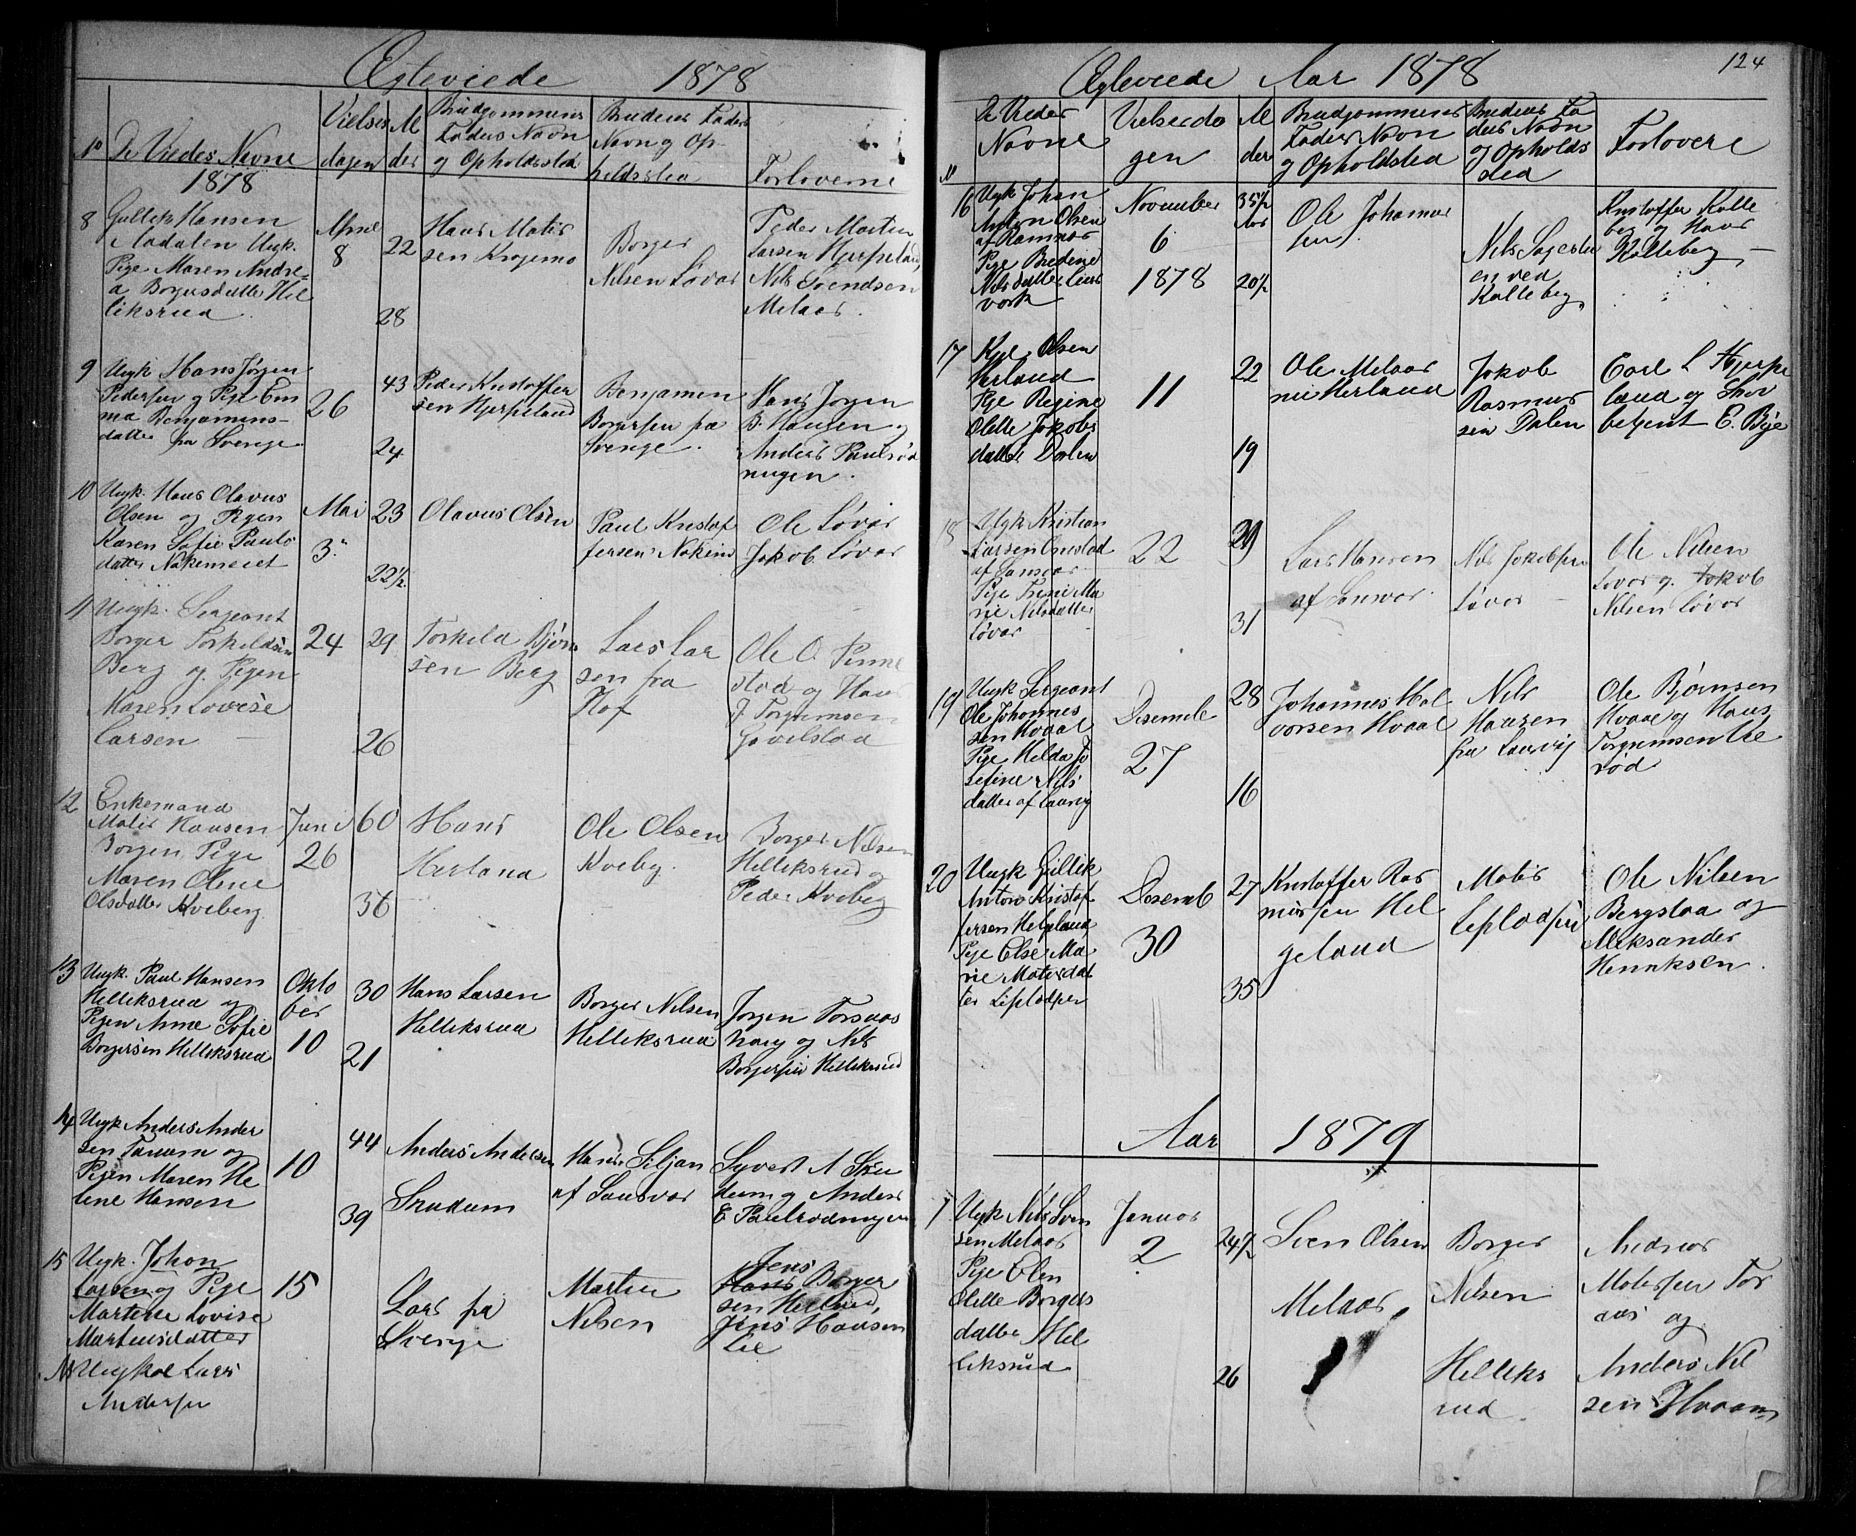 Ægteviede 1878
No
De Viedes Navne
1878
Vielses
dagen
Al
der
Brudgommens
Faders Navn
og Opholdssted
Brudens Faders
Navn og Op-
holdssted
Forloverne
8
Gullik Hansen
Aadalen Ungk.
Pige Maren Andre-
a Borgersdatter Hel
liksrud
April
8
22
28
Hans Matis
sen
Borger
Nilsen Løvar
Peder Martin
Larsen Hjerpeland,
Nils Svendsen
Melaas.
9
Ungk Hans Jørgen
Pedersen og Pige Em
ma Benjamins-
datter fra Sverige
26
43
24
Peder Kristoffer
sen Hjerpeland
Benjamen
Borgersen fra
Sverige.
Hans Jørgen
B. Hansen og
Anders Paulsrød
ningen.
10
Ungk. Hans Olavus
Olsen og Pigen
Karen Sofie Pauls
datter
Mai
3.
23
22½
Olavus Olsen
Paul Kristof
fersen
Ole Løvar
Jakob Løvar
11
Ungk. Sergeant
Borger Torkildsen
Berg og Pigen
Maren Lovise
Larsen
24
29
26
Torkild Bjørn
sen Berg
Lars Lar
sen fra
Hof
Ole O.
stad og Hans
J. Torgrimsen
12
Enkemand
Matis Hansen
Borgen Pige
Maren Olene
Olsdatter Kveberg
Juni
26
60
36
Hans
Herland
Ole Olsen
Kveberg.
Borger Nilsen
Helliksrud og
Peder Kveberg
13
Ungk. Paul Hansen
Helliksrud og
Pigen Anne Sofie
Borgersen Helliksrud
Okto
ber
10
30
21
Hans Larsen
Helliksrud
Borger Nilsen
Helliksrud
Jørgen Torsaas
haug og Nils
Borgersen Helliksrud
14
Ungk Anders Ander
sen og
Pigen Maren He
lene Hansen
10
44
39
Anders Andersen
Skudum
Hans Siljan
af Sandsvær
Syvert A Sku
dum og Anders
E Paulsrødningen
15
Ungk. Johan
Larsen og Pige
Martine Lovise
Martinsdatter
15
Lars fra
Sverige
Martin
Nilsen
Jens
Hans Borger
sen Herland,
Jens Hansen
Lie
Ungkal Lars
Andersen
Ægteviede Aar 1878
124
N
De Viedes
Navne
Vielsesda
gen
Al
der
Brudgommens
Faders Navn
og Opholdssted
Brudens Fa
ders Navn
og Opholds
sted
Forlovere
16
Ungk Johan
Anton Olsen
af Ramnæs
Pige Bredine
Nilsdatter Lurs
vork
November
6
1878
35½
Aar
20½
Ole Johannes
sen
Nils
en ved
Kolleberg
Kristoffer Kolle
berg og Hans
Kolleberg
17
Olsen
Herland
Pige Regine
Olette Jakobs
datter Dalen
11
22
19
Ole
Herland
Jakob
Rasmus
sen Dalen
Carl L Hjerpe
land og Skov
betjent E. Bye
18
Ungk Kristian
Larsen
af Sansvær
Pige Trine Ma
rie Nilsdatter
Løvar
22
29
31
Lars Hansen
af Sansvær.
Nils Jakobsen
Løvar
Ole Nilsen
Løvar og Jakob
Nilsen Løvar
19
Ungk Sergeant
Ole Johannes
sen Hvaal
Pige Helda Jo
sefine Nils
datter af Laurvig
Desembe
27
28
16
Johannes Hal
vorsen Hvaal
Nils
Hansen
fra Laurvig
Ole Bjørnsen
Hvaal og Hans
Torgrimsen
rød
20
Ungk Gullik
Anton Kristof
fersen Helgeland
Pige Else Ma
rie Matisdat
ter Liplodpen
Desemb
30
27
35
Kristoffer Ras
mussen Hel
geland
Matis
Liplodpen
Ole Nilsen
Bergstad og
Aleksander
Henriksen.
Aar 1879
1
Ungk Nils Sven
sen Melaas
Pige Elen
Olette Borgers
datter Hel
liksrud
Januar
2
24½
26
Sven Olsen
Melaas
Borger
Nilsen
Helliks
rud.
Andreas
Matissen Tor
aas og
Anders Nil
sen Hvaam